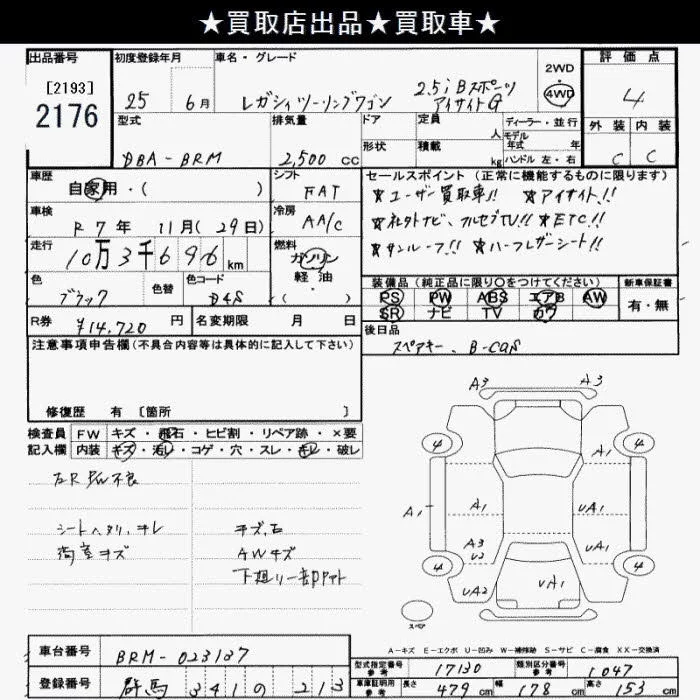 ★買取店出品★買取車★
出品番号 初度登録年月 車名・グレード 2WD・4WD 評価点
[2193]
2176
25 6月 レガシィツーリングワゴン 2.5i Bスポーツ アイサイトG 4
型式 排気量 ドア 定員 人 ディーラー・並行 外装 内装
形状 積載 kg モデル年式 年 ハンドル 左・右
DBA-BRM 2,500cc C C
車歴 自家用・( ) シフト FAT
セールスポイント(正常に機能するものに限ります)
★ユーザー買取車!! ★アイサイト!!
車検 R7年 11月(29日) 冷房 AA/C
★社外ナビ、フルセグTV!! ★ETC!!
走行 10万3千696km 燃料 ガソリン・軽油・( )
★サンルーフ!! ★ハーフレザーシート!!
色 ブラック 色替 色コード D4S
装備品(純正品に限り○をつけてください) 新車保証書
PS PW ABS エアB AW 有・無
SR ナビ TV カワ
R券 ¥14,720円 名変期限 月 日
後日品
スペアキー、B-CAS
注意事項申告欄(不具合内容等は具体的に記入して下さい)
修復歴 有 [箇所 ]
検査員 FW キズ・飛石・ヒビ割・リペア跡・×要
記入欄 内装 キズ・汚レ・コゲ・穴・スレ・キレ・破レ
左R P/W不良
シートヘタリ、キレ キズ,石
荷室キズ AWキズ
A3 A3
4 4
A1 A1 UA1
A3 UA1
4 4
UA2 UA1
スペア
A=キズ E=エクボ U=凹み W=補修跡 S=サビ C=腐食 XX=交換済
車台番号 BRM-023137
型式指定番号 参考 17130 類別区分番号 参考 1047
登録番号 群馬 341 の 213
車庫証明用 参考 長さ 479cm 幅 178cm 高さ 153cm